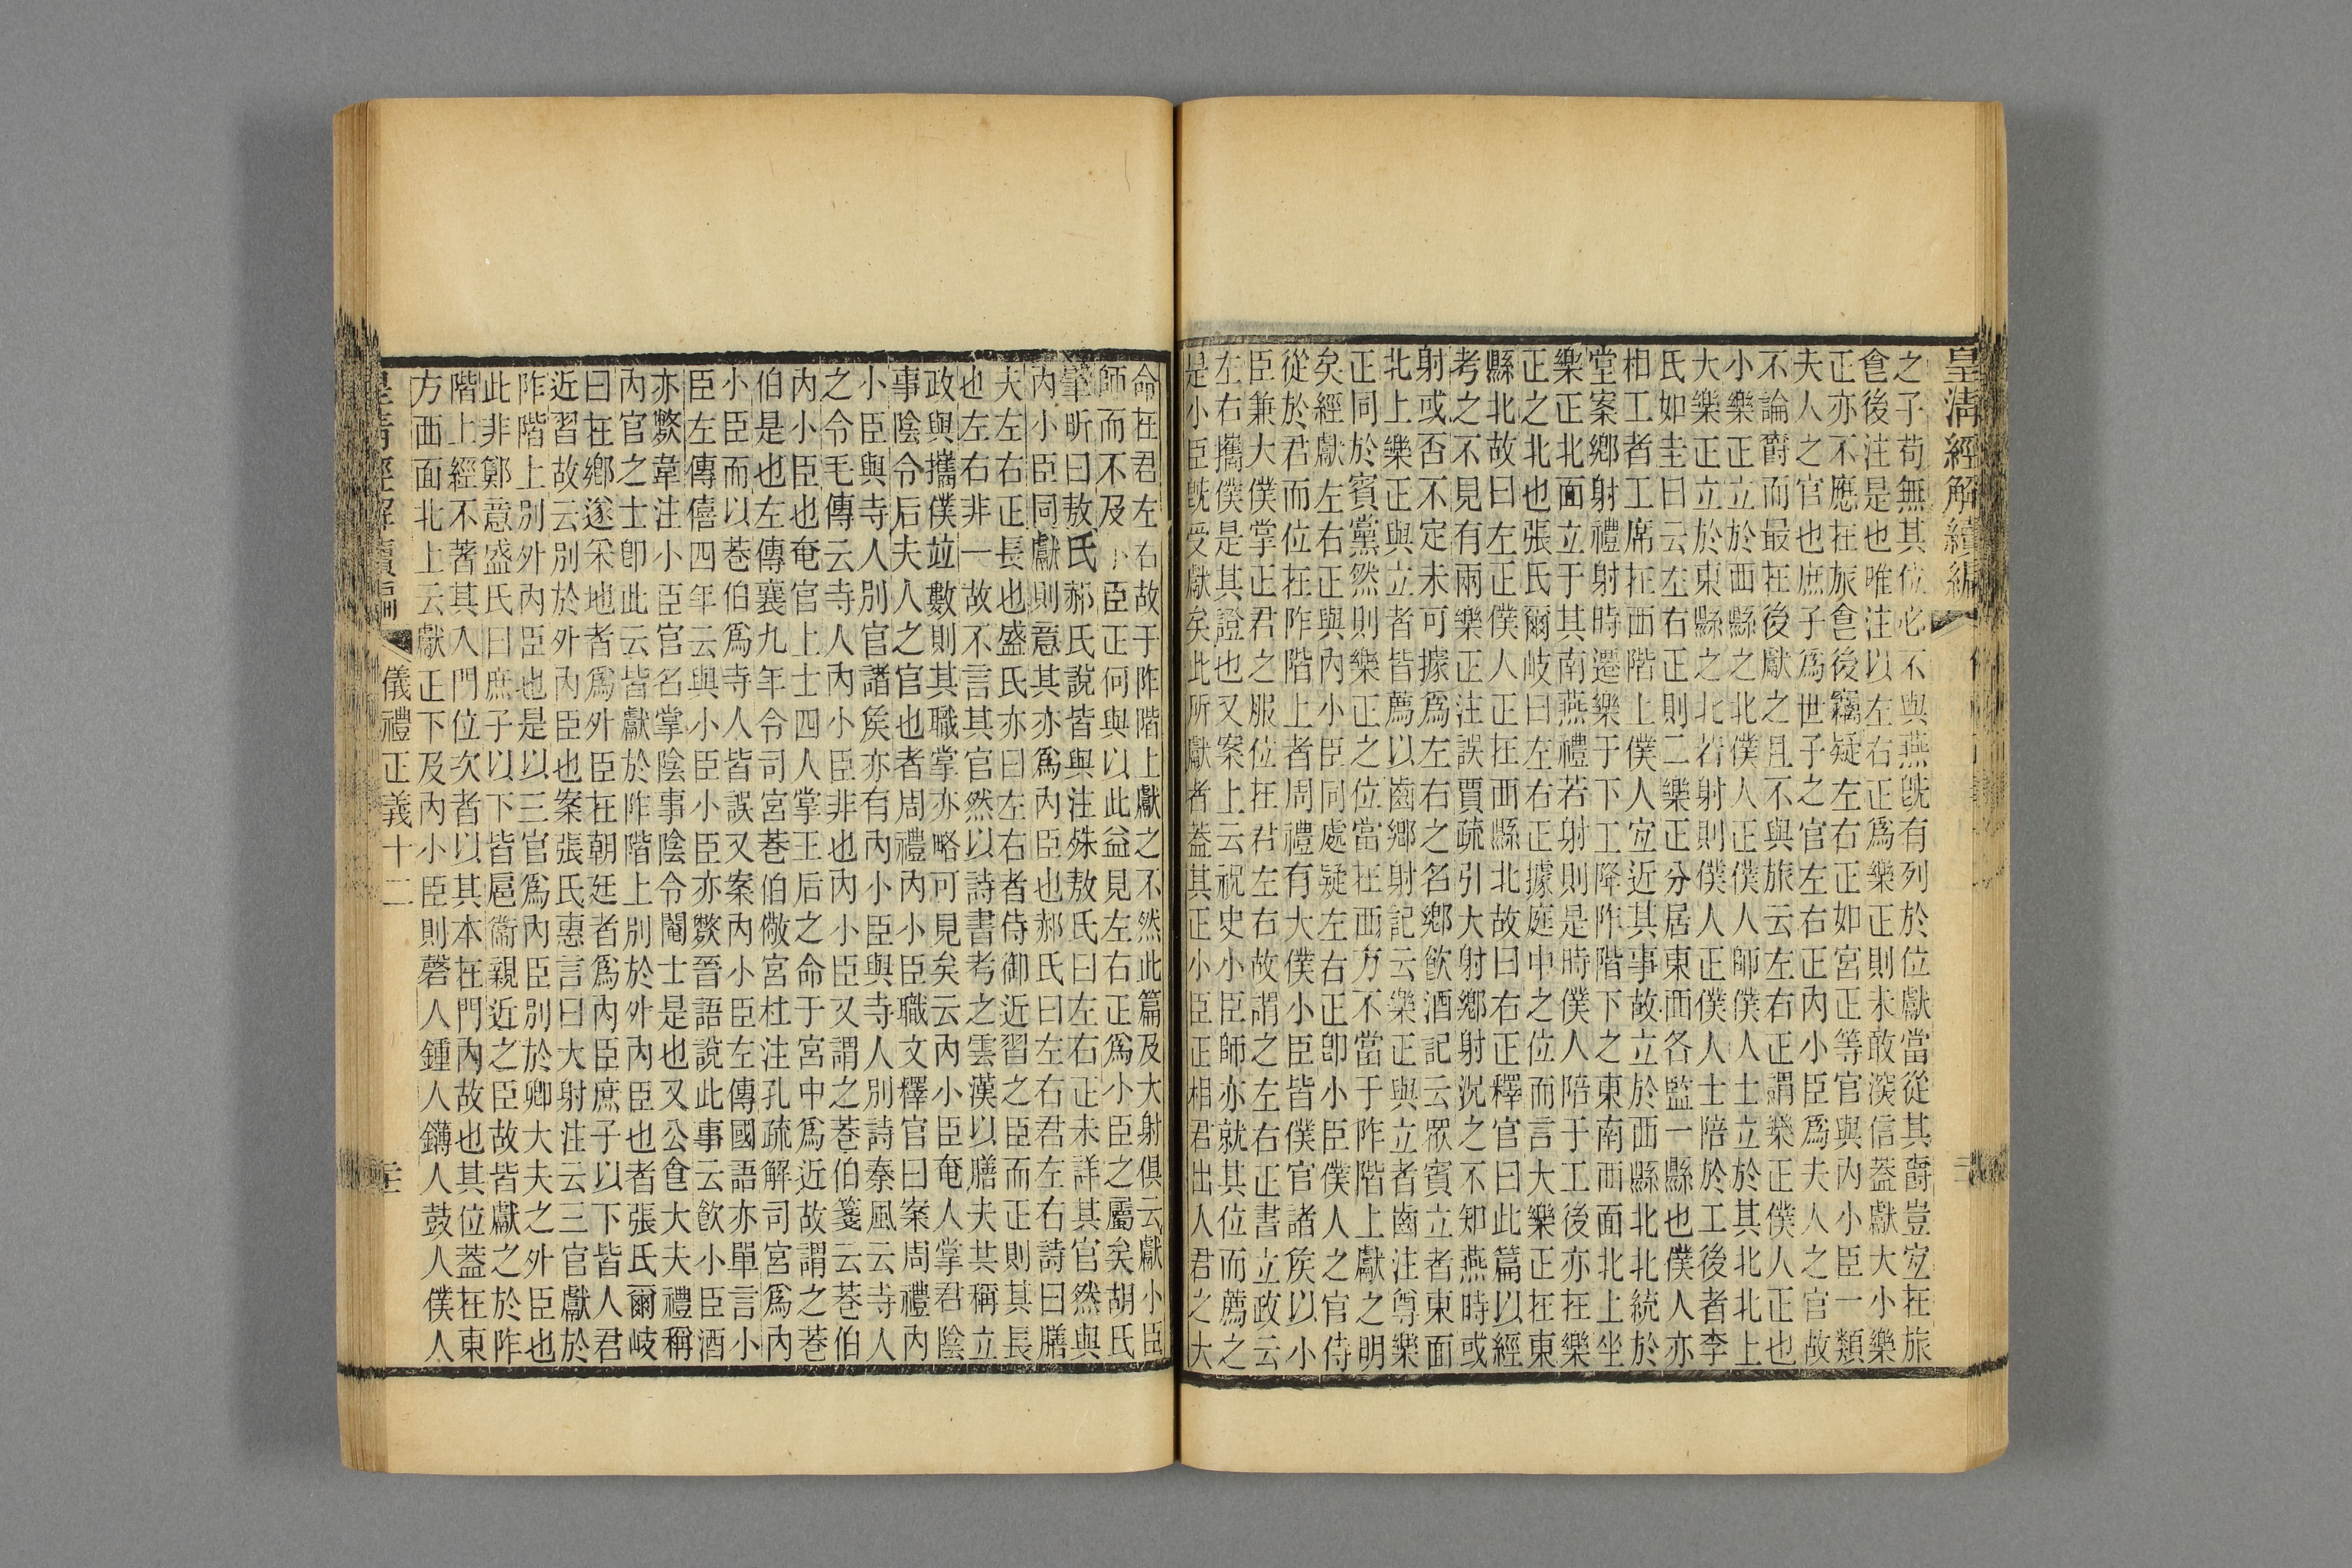 皇清經解續編
之子苟無其位必不與燕旣有列於位獻當從其爵豈宐在旅
食後注是也唯注以左右正爲樂正則未敢深信葢獻大小樂
正亦不應在旅食後竊疑左右正如宮正等官與內小臣一類
夫人之官也庶子爲世子之官左右正內小臣爲夫人之官故
不論爵而最在後獻之且不與旅云左右正謂樂正僕人正也
小樂正立於西縣之北僕人正僕人師僕人士立於其北北上
大樂正立於東縣之北若射則僕人正僕人士陪於工後者李
氏如圭曰云左右正則二樂正分居東西各監一縣也僕人亦
相工者工席在西階上僕人宐近其事故立於西縣北北統於
堂案鄉射禮射時遷樂于下工降阼階下之東南西面北上坐
樂正北面立于其南燕禮若射則是時僕人陪于工後亦在樂
正之北也張氏爾岐曰左右正據庭中之位而言大樂正在東
縣北故曰左正僕人正在西縣北故曰右正釋官曰此篇以經
考之不見有兩樂正注誤賈疏引大射鄉射況之不知燕時或
射或否不定未可據爲左右之名鄉飲酒記云眾賓立者東面
北上樂正與立者皆薦以齒鄉射記云樂正與立者齒注尊樂
正同於賓黨然則樂正之位當在西方不當于阼階上獻之明
矣經獻左右正與內小臣同處疑左右正卽小臣僕人之官侍
從於君而位在阼階上者周禮有大僕小臣皆僕官諸矦以小
臣兼大僕掌正君之服位在君左右故謂之左右正書立政云
左右攜僕是其證也又案上云祝史小臣師亦就其位而薦之
是小臣旣受獻矣此所獻者葢其正小臣正相君出人君之大
命在君左右故于阼階上獻之不然此篇及大射俱云獻小臣
師而不及小臣正何與以此益見左右正爲小臣之屬矣胡氏
肇昕曰敖氏郝氏說皆與注殊敖氏曰左右正未詳其官然與
內小臣同獻則意其亦爲內臣也郝氏曰左右君左右詩曰膳
夫左右正長也盛氏亦曰左右者侍御近習之臣而正則其長
也左右非一故不言其官然以詩書考之雲漢以膳夫共稱立
政與攜僕竝數則其職掌亦略可見矣云內小臣奄人掌君陰
事陰令后夫人之官也者周禮內小臣職文釋官曰案周禮內
小臣與寺人別官諸矦亦有內小臣與寺人別詩秦風云寺人
之令毛傳云寺人內小臣非也內小臣又謂之巷伯箋云巷伯
內小臣也奄官上士四人掌王后之命于宮中爲近故謂之巷
伯是也左傳襄九年令司宮巷伯儆宮杜注孔疏解司宮爲內
小臣而以巷伯爲寺人皆誤又案內小臣左傳國語亦單言小
臣左傳僖四年云與小臣小臣亦斃晉語說此事云飲小臣酒
亦斃韋注小臣官名掌陰事陰令閽士是也又公食大夫禮稱
內官之士卽此云皆獻於阼階上別於外內臣也者張氏爾岐
曰在鄉遂采地者爲外臣在朝廷者爲內臣庶子以下皆人君
近習故云別於外內臣也案張氏惠言曰大射注云三官獻於
阼階上別外內臣也是以三官爲內臣別於卿大夫之外臣也
此非鄭意盛氏曰庶子以下皆扈衞親近之臣故皆獻之於阼
階上經不著其入門位次者以其本在門內故也其位葢在東
方西面北上云獻正下及內小臣則磬人鍾人鑮人鼓人僕人
皇清經解續編 儀禮正義十二